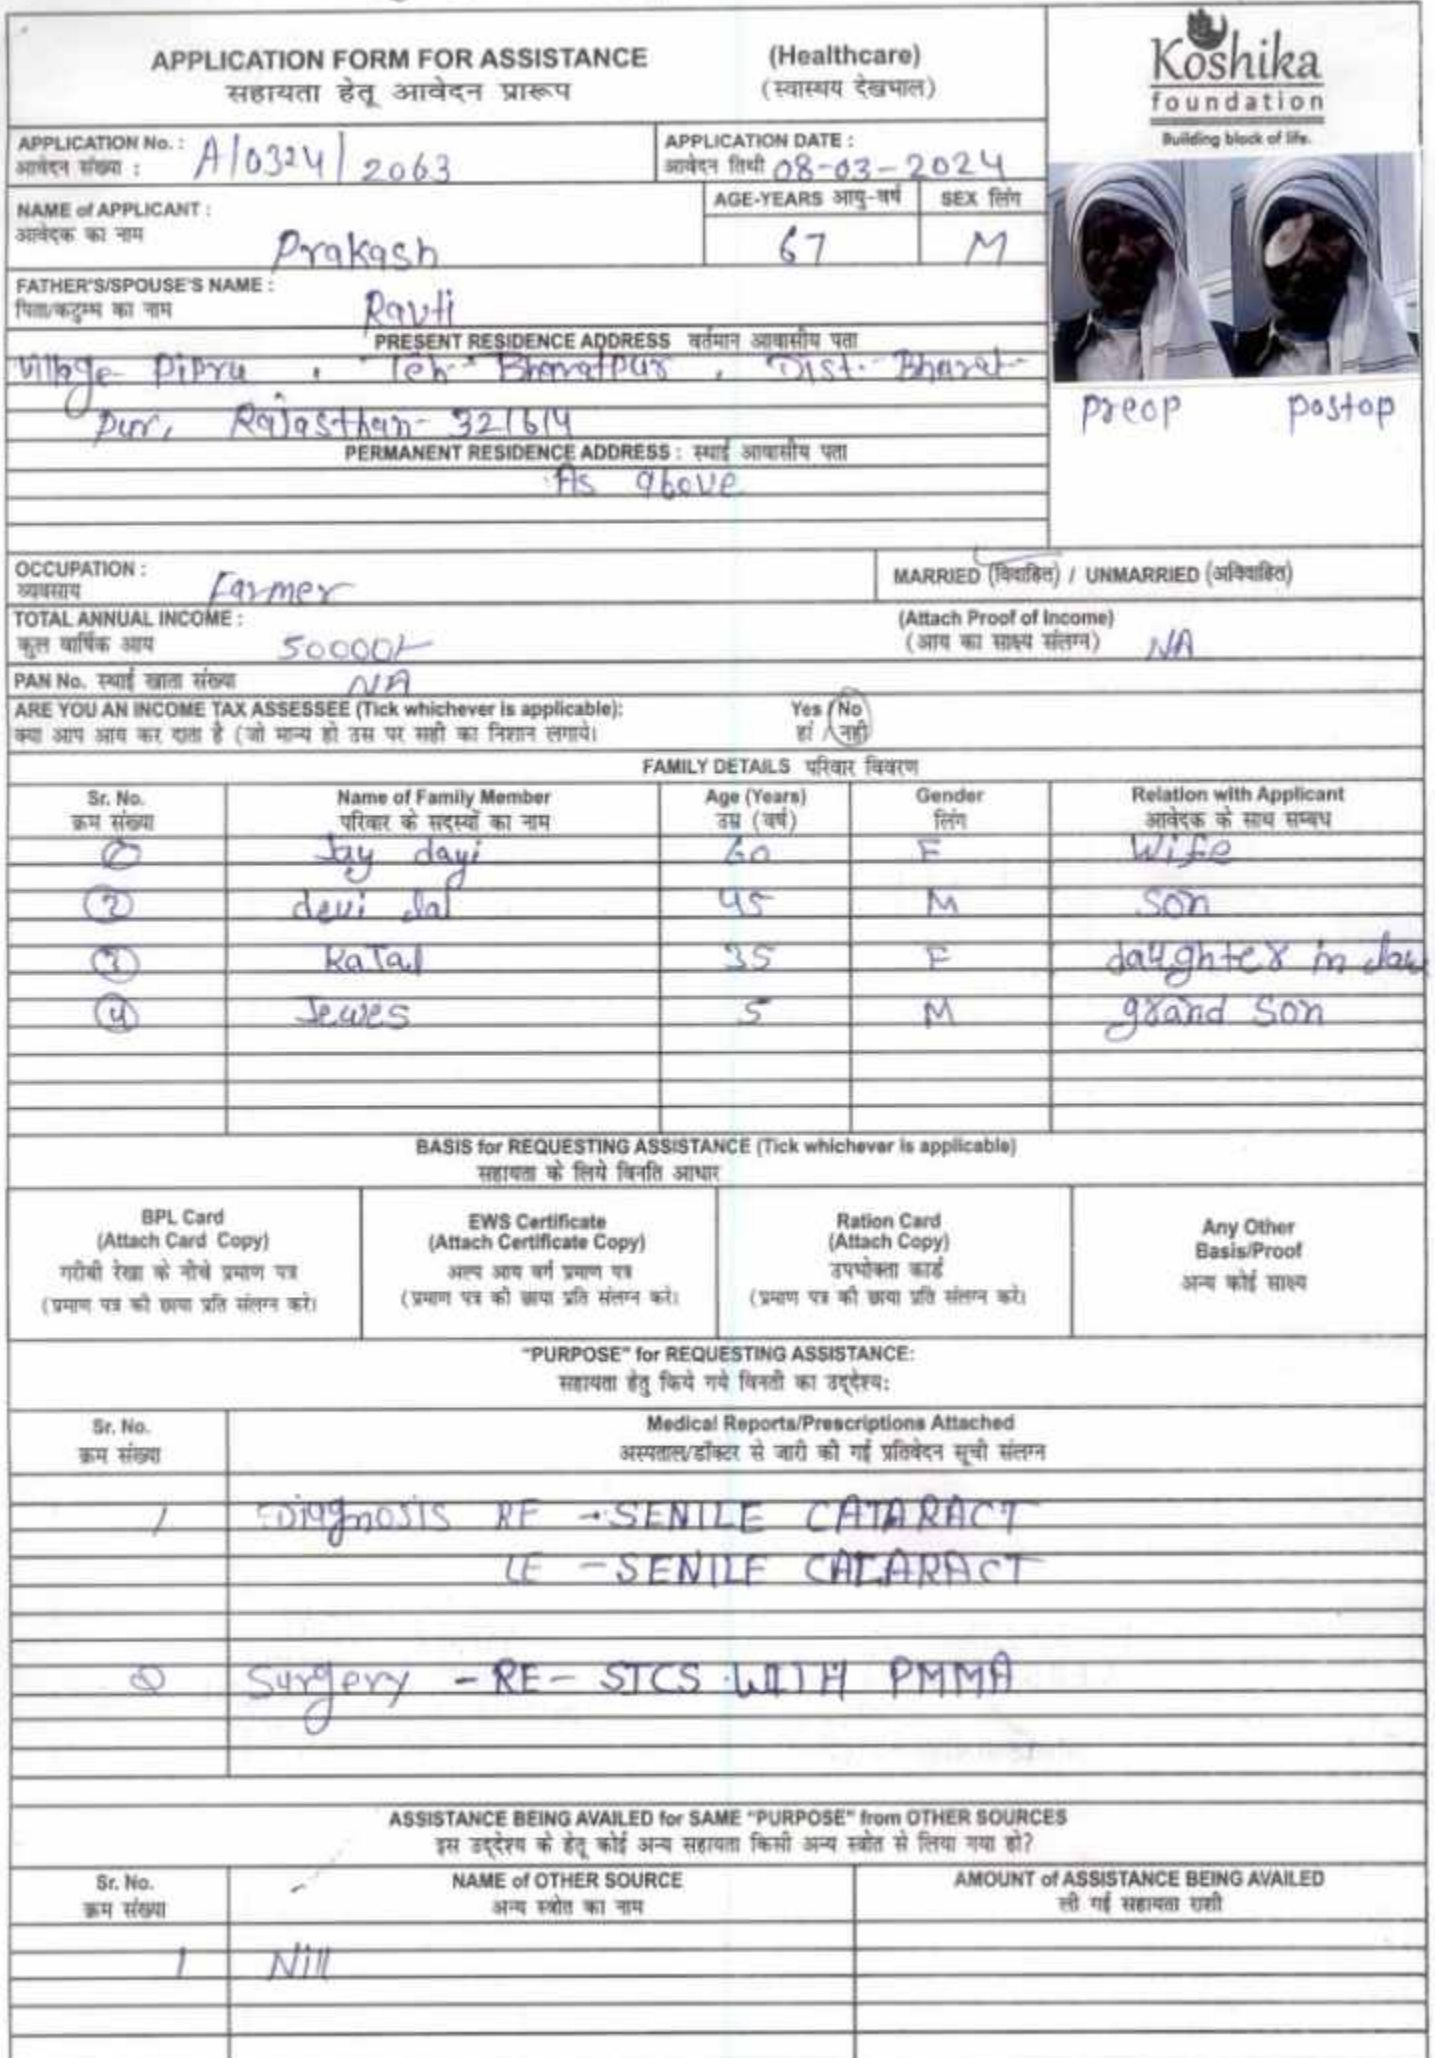 APPLICATION FORM FOR ASSISTANCE (Healthcare)
सहायता हेतू आवेदन प्रारूप (स्वास्थय देखभाल)
Koshika
foundation
Building block of life.
APPLICATION No. : A/0324/2063
आवेदन संख्या :
APPLICATION DATE :
आवेदन तिथी 08-03-2024
NAME of APPLICANT :
आवेदक का नाम Prakash
AGE-YEARS आयु-वर्ष 67
SEX लिंग M
FATHER'S/SPOUSE'S NAME :
पिता/कटुम्ब का नाम Ravti
PRESENT RESIDENCE ADDRESS वर्तमान आवासीय पता
Village Pipru , Teh- Bharatpur , Dist.- Bharat-
pur, Rajasthan- 321614
preop postop
PERMANENT RESIDENCE ADDRESS : स्थाई आवासीय पता
As above
OCCUPATION :
व्यवसाय Farmer
MARRIED (विवाहित) / UNMARRIED (अविवाहित)
TOTAL ANNUAL INCOME :
कुल वार्षिक आय 50000/-
(Attach Proof of Income)
(आय का साक्ष्य संलग्न) NA
PAN No. स्थाई खाता संख्या NA
ARE YOU AN INCOME TAX ASSESSEE (Tick whichever is applicable): Yes / No
क्या आप आय कर दाता है (जो मान्य हो उस पर सही का निशान लगाये। हां / नहीं
FAMILY DETAILS परिवार विवरण
Sr. No. Name of Family Member Age (Years) Gender Relation with Applicant
क्रम संख्या परिवार के सदस्यों का नाम उम्र (वर्ष) लिंग आवेदक के साथ सम्बध
1 Jay dayi 60 F Wife
2 devi lal 45 M son
3 Katal 35 F daughter in law
4 Jewes 5 M grand son
BASIS for REQUESTING ASSISTANCE (Tick whichever is applicable)
सहायता के लिये विनति आधार
BPL Card
(Attach Card Copy)
गरीबी रेखा के नीचे प्रमाण पत्र
(प्रमाण पत्र की छाया प्रति संलग्न करे।
EWS Certificate
(Attach Certificate Copy)
अल्प आय वर्ग प्रमाण पत्र
(प्रमाण पत्र की छाया प्रति संलग्न करे।
Ration Card
(Attach Copy)
उपभोक्ता कार्ड
(प्रमाण पत्र की छाया प्रति संलग्न करे।
Any Other
Basis/Proof
अन्य कोई साक्ष्य
"PURPOSE" for REQUESTING ASSISTANCE:
सहायता हेतु किये गये विनती का उद्देश्य:
Sr. No. Medical Reports/Prescriptions Attached
क्रम संख्या अस्पताल/डॉक्टर से जारी की गई प्रतिवेदन सूची संलग्न
1 Diagnosis RE - SENILE CATARACT
LE - SENILE CATARACT
2 Surgery - RE - SICS WITH PMMA
ASSISTANCE BEING AVAILED for SAME "PURPOSE" from OTHER SOURCES
इस उद्देश्य के हेतू कोई अन्य सहायता किसी अन्य स्त्रोत से लिया गया हो?
Sr. No. NAME of OTHER SOURCE AMOUNT of ASSISTANCE BEING AVAILED
क्रम संख्या अन्य स्त्रोत का नाम ली गई सहायता राशी
1 Nill